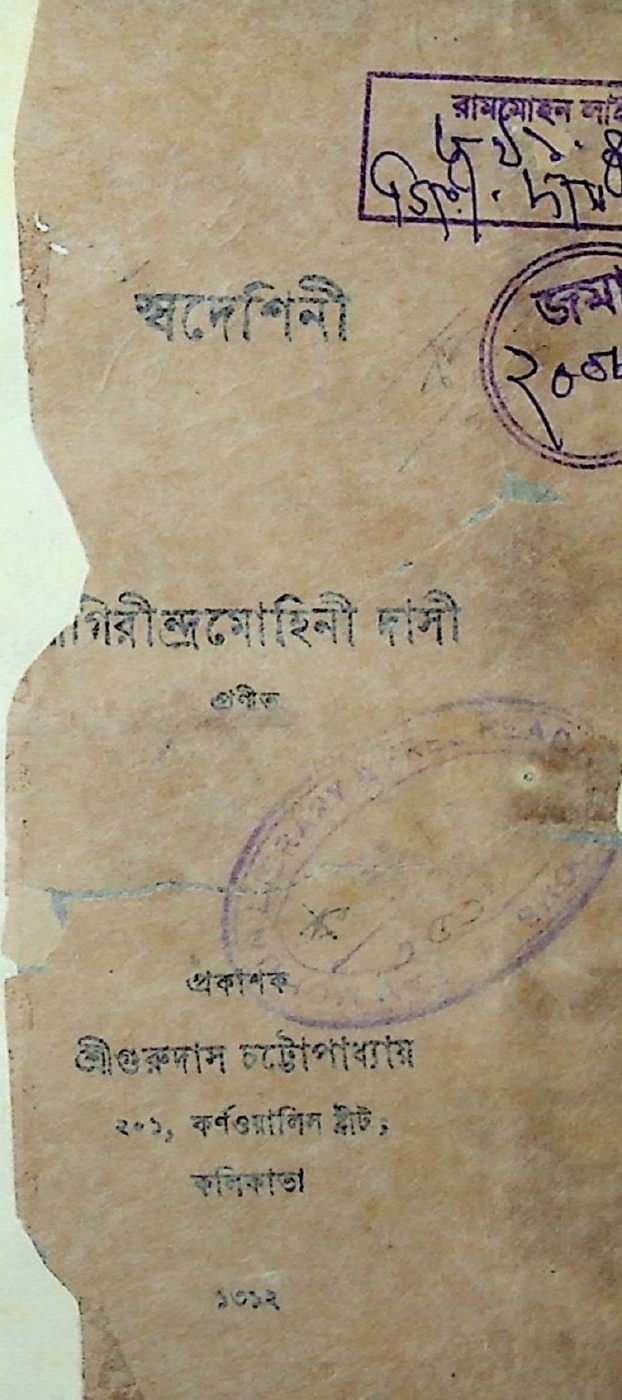 রামমোহন
জমা
স্বদেশিনী
গিরীন্দ্রমোহিনী দাসী
প্রণীত
প্রকাশক
শ্রীগুরুদাস চট্টোপাধ্যায়
২০১, কর্ণওয়ালিস ষ্ট্রীট,
কলিকাতা
১৩১২